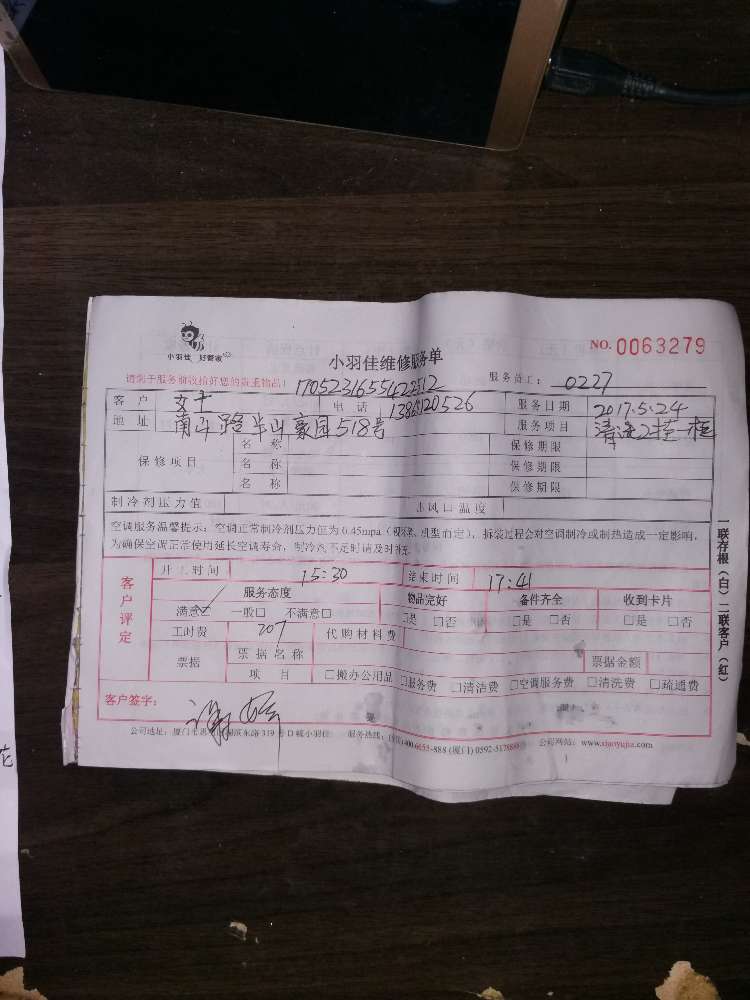 小羽佳 好管家
小羽佳维修服务单
NO. 0063279
请您于服务前收拾好您的贵重物品!
1705231655422512
服务员工: 0227
客户 女士 电话 服务日期 2017.5.24
地址 南山路半山家园518号 服务项目 清洗2挂一柜
保修项目 名称 保修期限
名称 保修期限
名称 保修期限
制冷剂压力值 出风口温度
空调服务温馨提示:空调正常制冷剂压力值为0.45mpa(视环境、机型而定),拆装过程会对空调制冷或制热造成一定影响,
为确保空调正常使用延长空调寿命,制冷剂不足时请及时补.
客户评定
开工时间 15:30 结束时间 17:41
服务态度 物品完好 备件齐全 收到卡片
满意☑ 一般□ 不满意□ □是 □否 □是 □否 □是 □否
工时费 207 代购材料费
票据 票据名称 票据金额
项目 □搬办公用品 □服务费 □清洁费 □空调服务费 □清洗费 □疏通费
客户签字:
公司地址:厦门市 东路319号D幢小羽佳 服务热线: 400 6653-888 (厦门) 0592- 公司网站: www.xiaoyujia.com
一联存根(白) 二联客户(红)